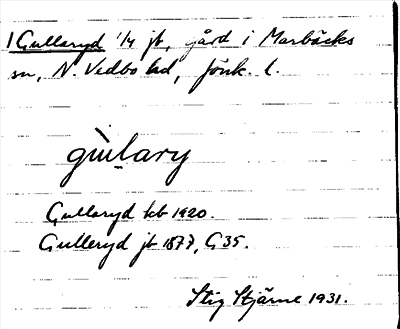 1 Gullaryd 1/4 jb, gård i Marbäcks
sn, N. Vedbo hd, Jönk. l.
gùlary
Gullaryd kb 1920.
Gulleryd jb 1877, G35.
Stig Stjärne 1931.